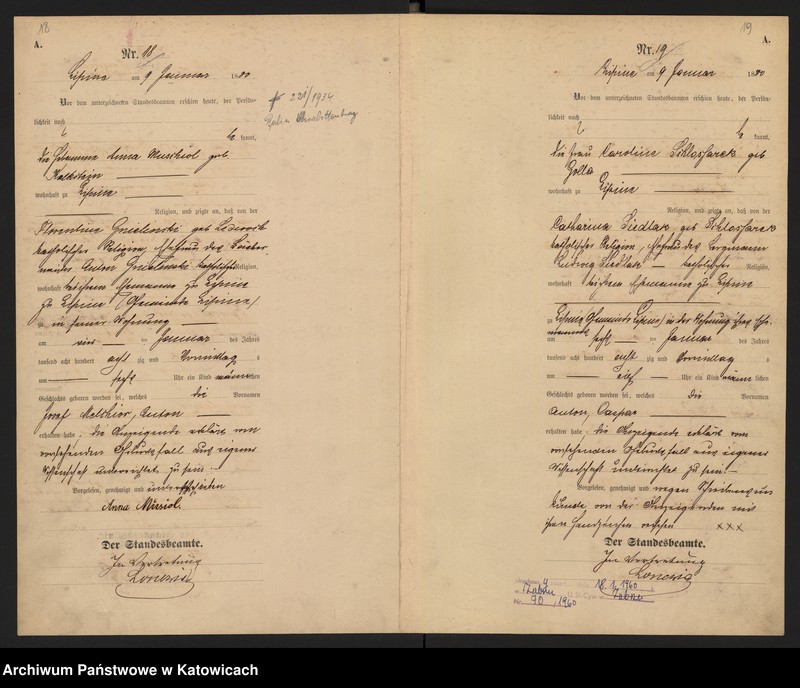 18
A.
Nr. 18
Lipine am 9 Januar 1880
Vor dem unterzeichneten Standesbeamten erschien heute, der Persön-
lichkeit nach
kannt,
die Hebamme Anna Muschiol geb
wohnhaft zu Lipine
Religion, und zeigte an, daß von der
Florentine geb
katholischer Religion, Ehefrau des
Anton katholischer Religion,
wohnhaft bei ihrem Ehemanne zu Lipine
zu Lipine (Gemeinde Lipine)
in seiner Wohnung
am vier ten Januar des Jahres
tausend acht hundert acht zig und Vormittag s
um sechs Uhr ein Kind männlichen
Geschlechts geboren worden sei, welches die Vornamen
Josef Melchior, Anton
erhalten habe, die Anzeigende erklärt vom
vorstehenden Geburtsfall aus eigener
Wissenschaft unterrichtet zu sein.
Vorgelesen, genehmigt und unterschrieben
Anna Musiol.
Der Standesbeamte.
In Vertretung
221/1934
19
A.
Nr. 19
Lipine am 9 Januar 1880
Vor dem unterzeichneten Standesbeamten erschien heute, der Persön-
lichkeit nach
kannt,
die Frau Caroline Schlossarek geb
wohnhaft zu Lipine
Religion, und zeigte an, daß von der
Catharina Siedlak, geb Schlossarek
katholischer Religion, Ehefrau des Bergmann
Ludwig Siedlak katholischer Religion,
wohnhaft bei ihrem Ehemanne zu Lipine
zu Lipine (Gemeinde Lipine) in der Wohnung ihres Ehe-
mannes sechs ten Januar des Jahres
tausend acht hundert acht zig und Vormittag s
um elf Uhr ein Kind männlichen
Geschlechts geboren worden sei, welches die Vornamen
Anton, Caspar
erhalten habe, die Anzeigende erklärt vom
vorstehenden Geburtsfall aus eigener
Wissenschaft unterrichtet zu sein.
Vorgelesen, genehmigt und wegen Schreibensun
kunde von der Anzeigenden mit
ihren Handzeichen versehen xxx
Der Standesbeamte.
In Vertretung
Zabrze
Nr. 90, 1960
18. 1. 1960
Zabrze
Archiwum Państwowe w Katowicach